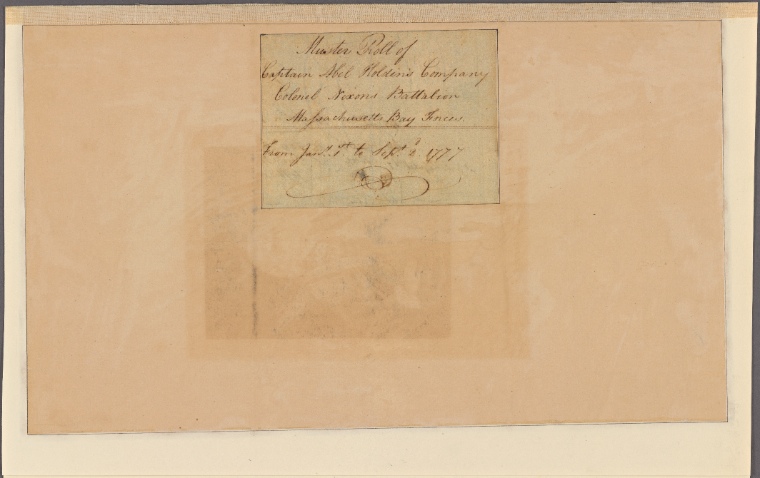 Muster Roll of
Captain Abel Holden's Company
Colonel Nixons Battalion
Massachusetts Bay Forces
From Jany. 1st to Sept.r 1777